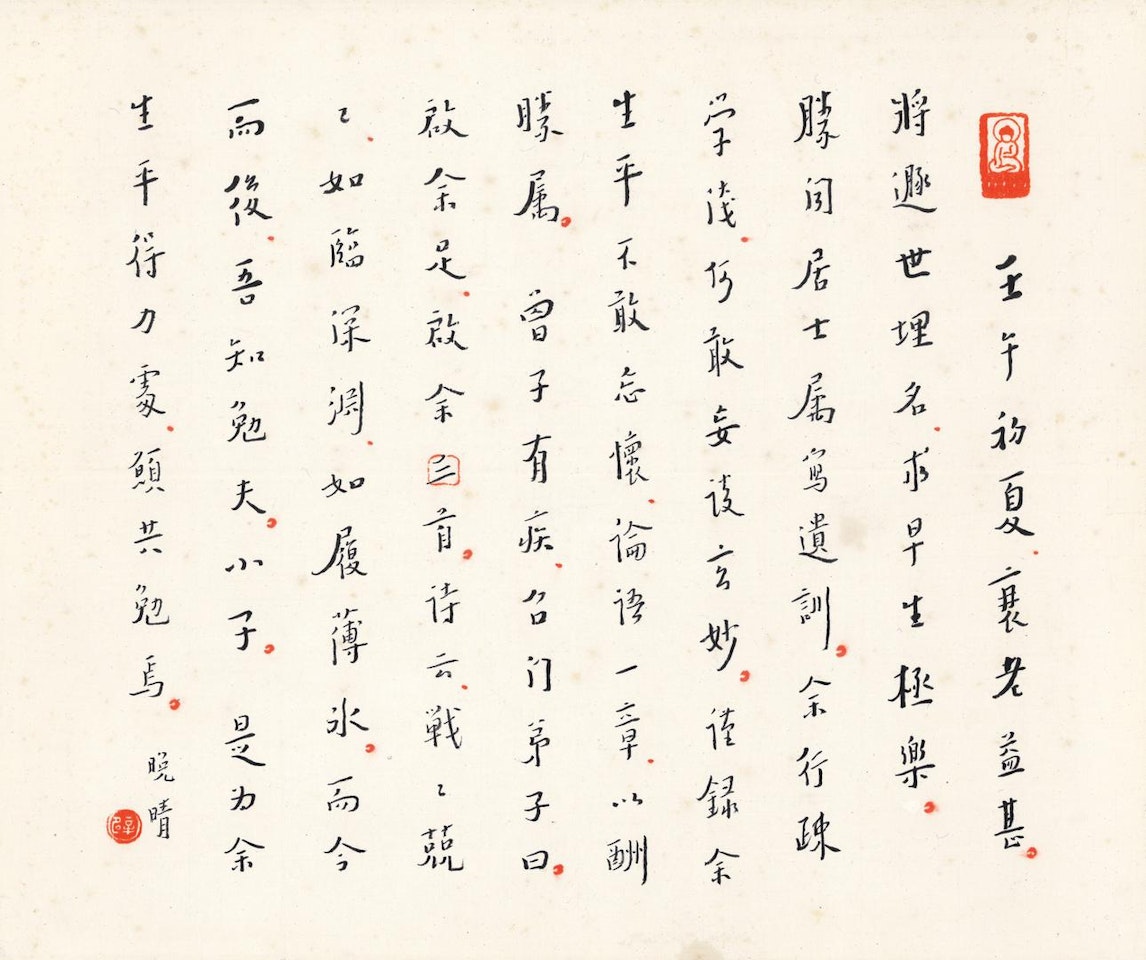 壬午初夏衰老益甚
將遯世埋名求早生極樂
勝聞居士属寫遺訓余行疎
學淺何敢妄談玄妙謹録余
生平不敢忘懷論語一章以酬
勝属 曾子有疾召门弟子曰
啟余足啟余三首詩云戦〻兢
〻如臨深渊如履薄氷而今
而後吾知勉夫小子 是为余
生平得力處願共勉焉
晚晴